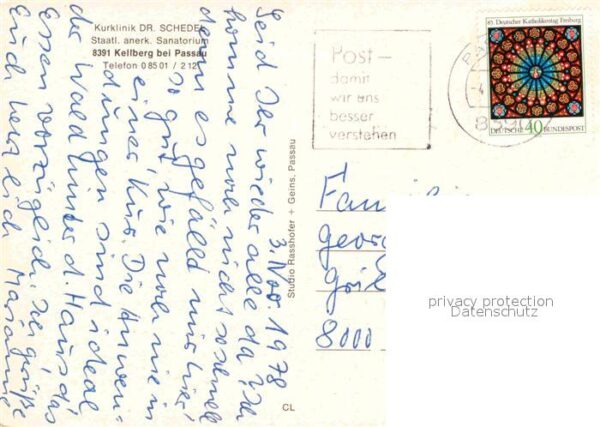 Kurklinik DR. SCHEDEL
Staatl. anerk. Sanatorium
8391 Kellberg bei Passau
Telefon 0 85 01 / 2 12
3. Nov. 1978
Seid Ihr wieder alle da? Ich
komme noch nicht so schnell
denn es gefällt mir hier
so gut, wie noch nie in
einer Kur. Die Anwen-
dungen sind ideal,
der Wald hinter d. Haus, das
Essen vorzüglich. Ich grüße
Euch herzlich Marianne
Studio Rasshofer + Geins, Passau
CL
Post –
damit
wir uns
besser
verstehen
85. Deutscher Katholikentag Freiburg
DEUTSCHE 40 BUNDESPOST
Familie
8000
privacy protection
Datenschutz